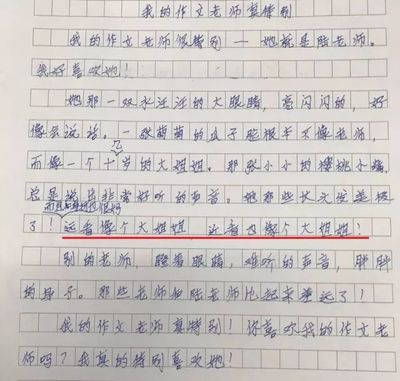 我的作文老师真特别
我的作文老师很特别——她就是陆老师。
我好喜欢她!
她那一双水汪汪的大眼睛,亮闪闪的,好
像会说话。一张萌萌的瓜子脸根本不像老师,
而像一个十几岁的大姐姐。那张小小的樱桃小嘴,
总是说出非常好听的声音。她那些长文发是极
而且身材也很好
了!远看像个大姐姐 近看也像个大姐姐!
别的老师,瞪着眼睛,难听的声音,胖胖
的身子。那些老师和陆老师比起来差远了!
我的作文老师真特别!你喜欢我的作文老
师吗?我真的特别喜欢她!